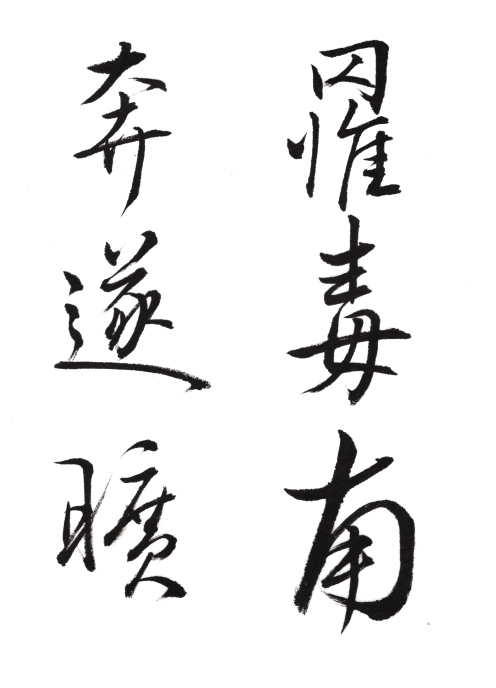 罹毒南
奔遂曠